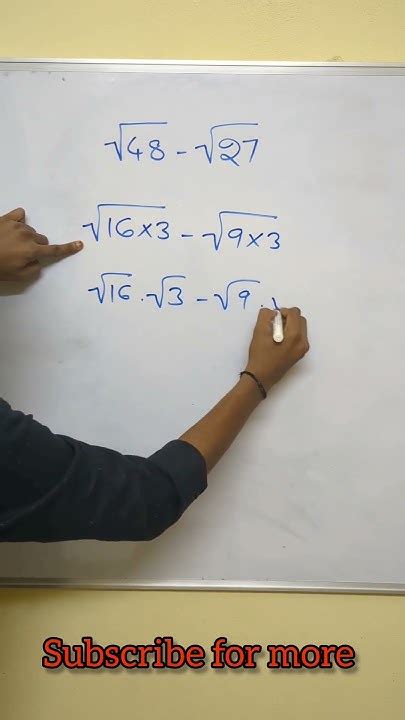 √48 - √27
√16×3 - √9×3
√16 . √3 - √9 .
Subscribe for more